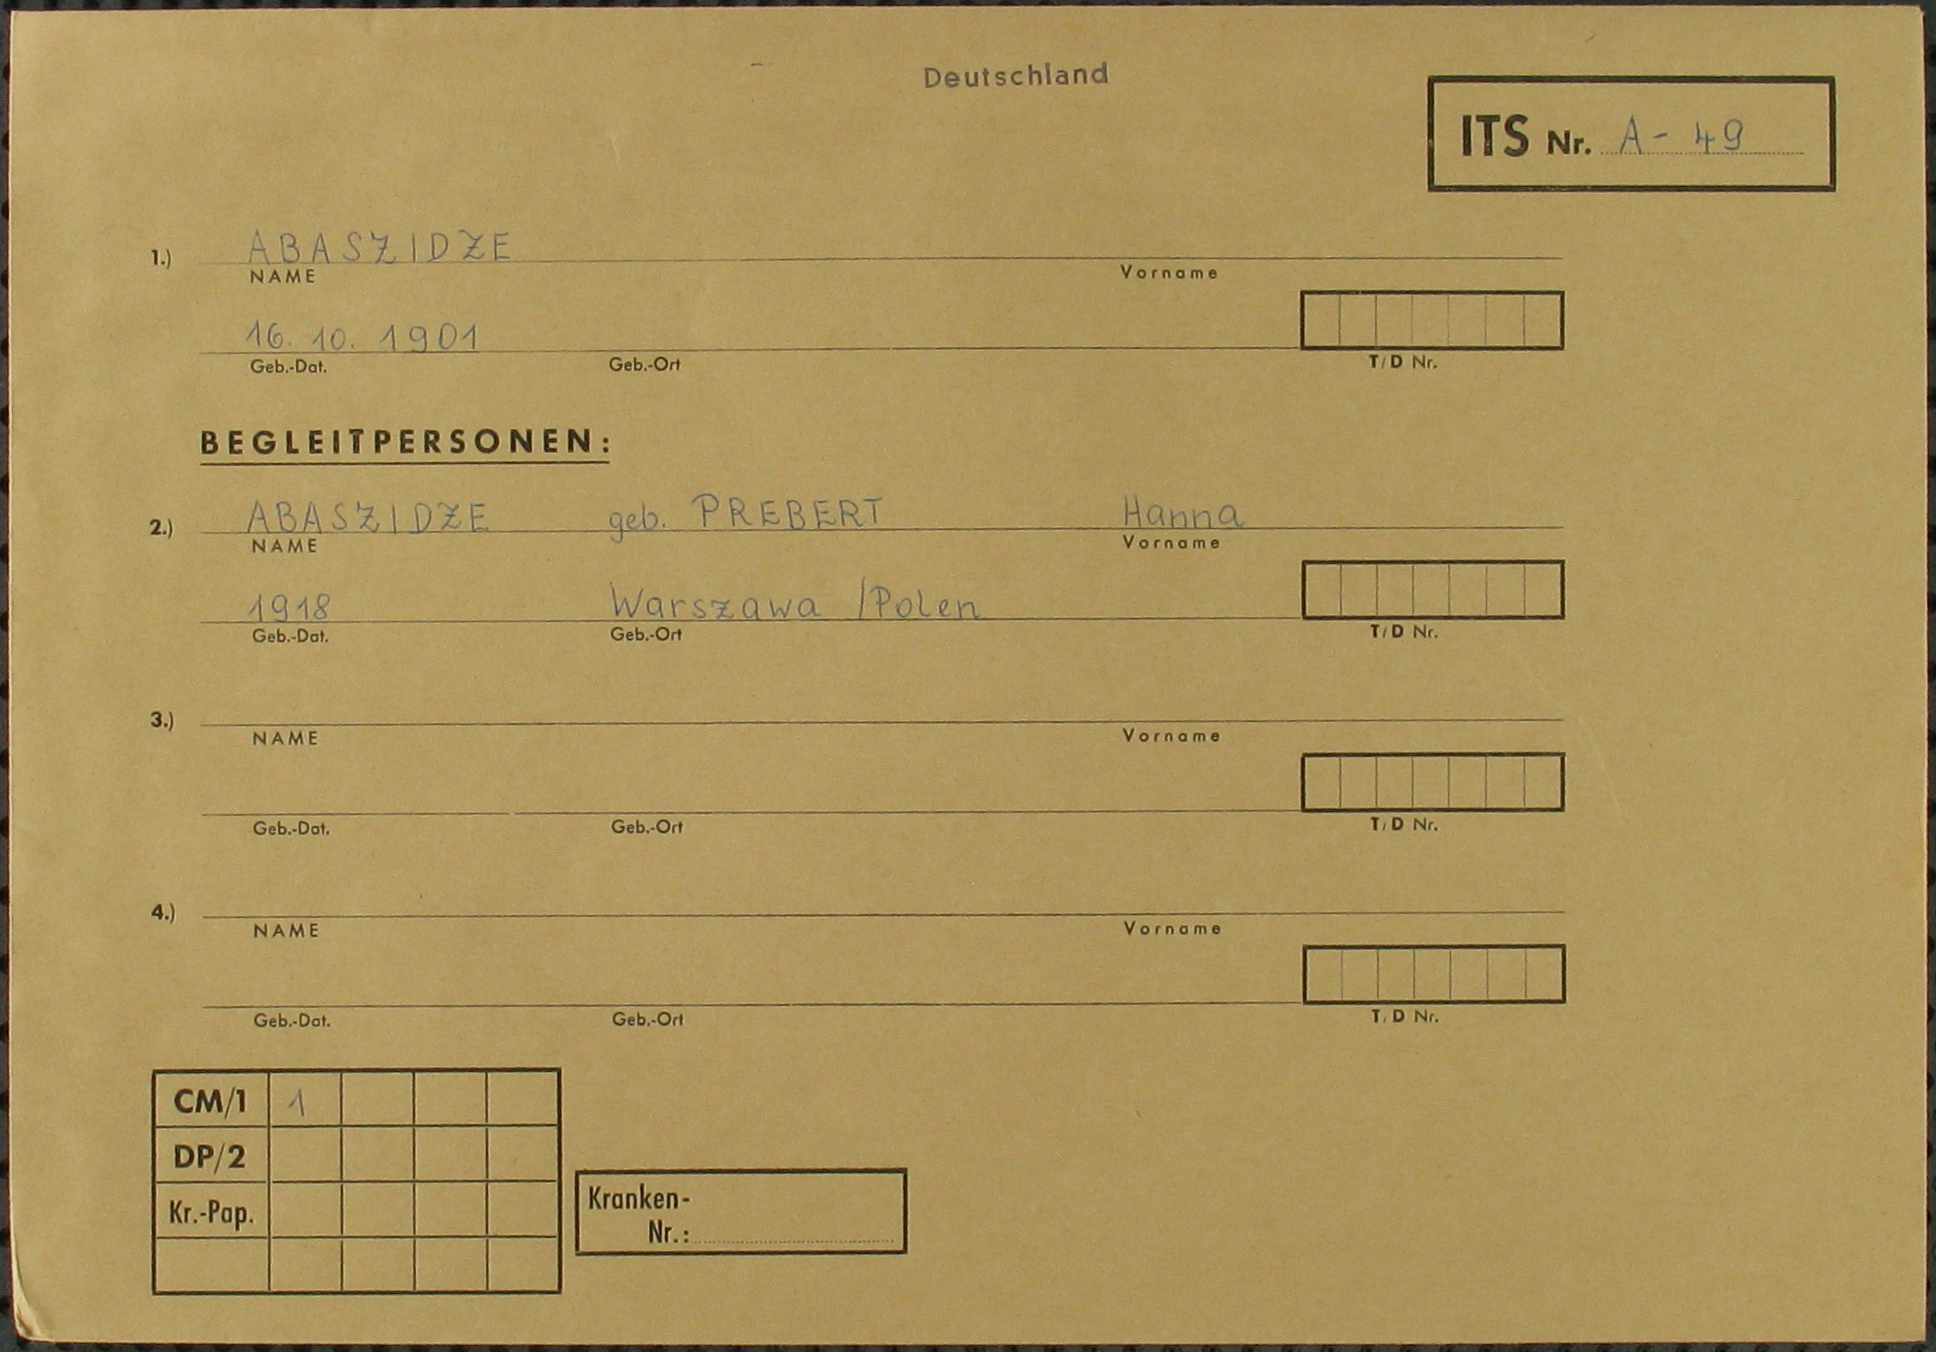 Deutschland
ITS Nr. A - 49
1.) ABASZIDZE
NAME Vorname
16. 10. 1901
Geb.-Dat. Geb.-Ort T/D Nr.
BEGLEITPERSONEN:
2.) ABASZIDZE geb. PREBERT Hanna
NAME Vorname
1918 Warszawa /Polen
Geb.-Dat. Geb.-Ort T/D Nr.
3.)
NAME Vorname
Geb.-Dat. Geb.-Ort T/D Nr.
4.)
NAME Vorname
Geb.-Dat. Geb.-Ort T/D Nr.
CM/1 1
DP/2
Kr.-Pap.
Kranken-
Nr.: